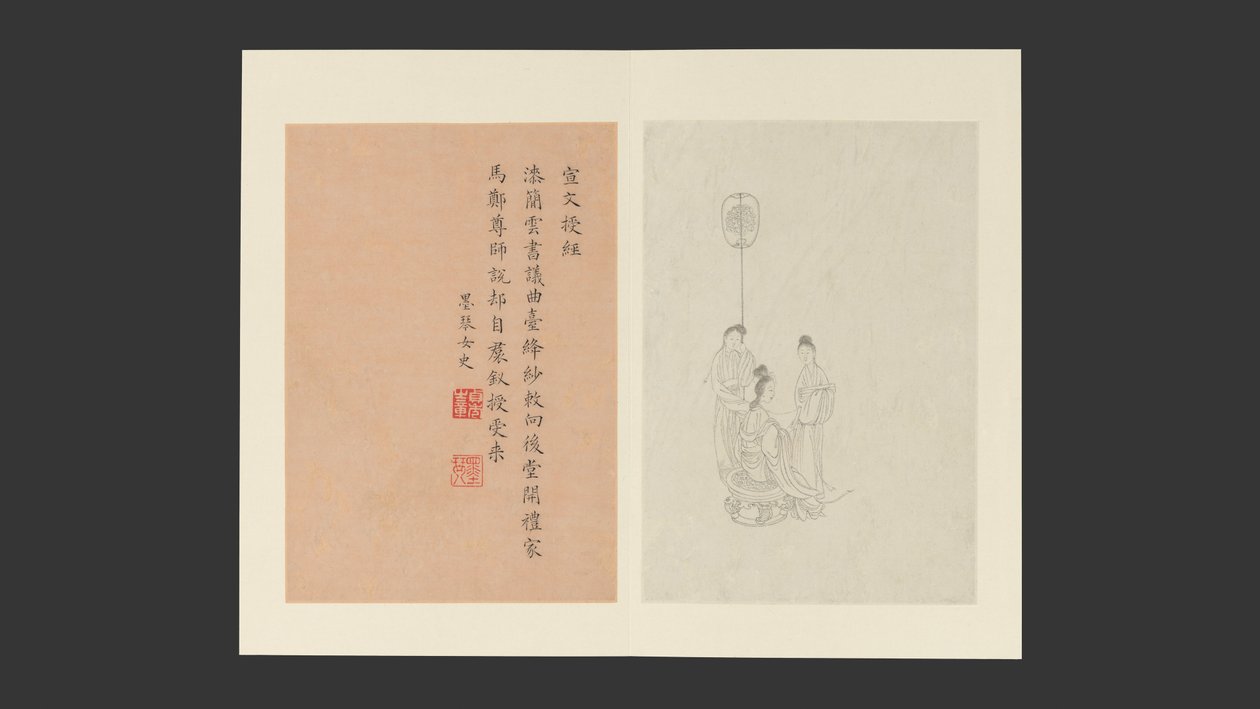 宣文授經
漆簡雲書議曲臺絳紗敕向後堂開禮家
馬鄭尊師說却自裠釵授受来
墨琴女史
墨琴